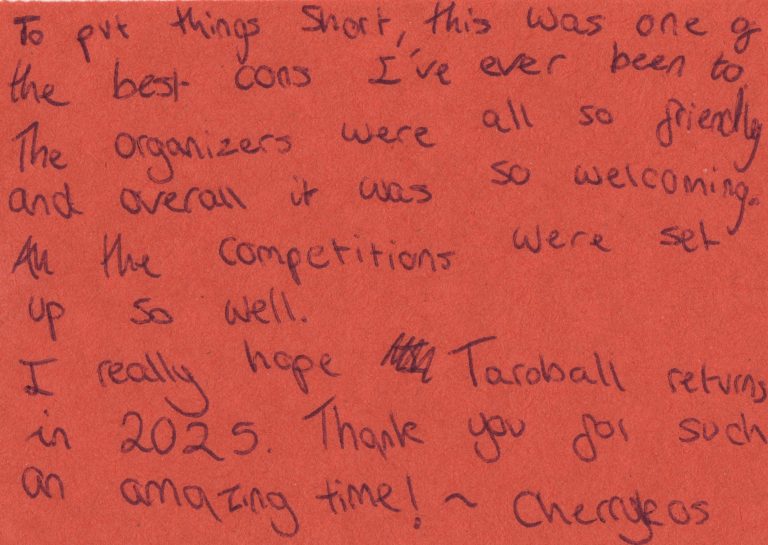 To put things short, this was one of
the best cons I've ever been to,
The organizers were all so friendly
and overall it was so welcoming.
All the competitions were set
up so well.
I really hope Taroball returns
in 2025. Thank you for such
an amazing time! ~